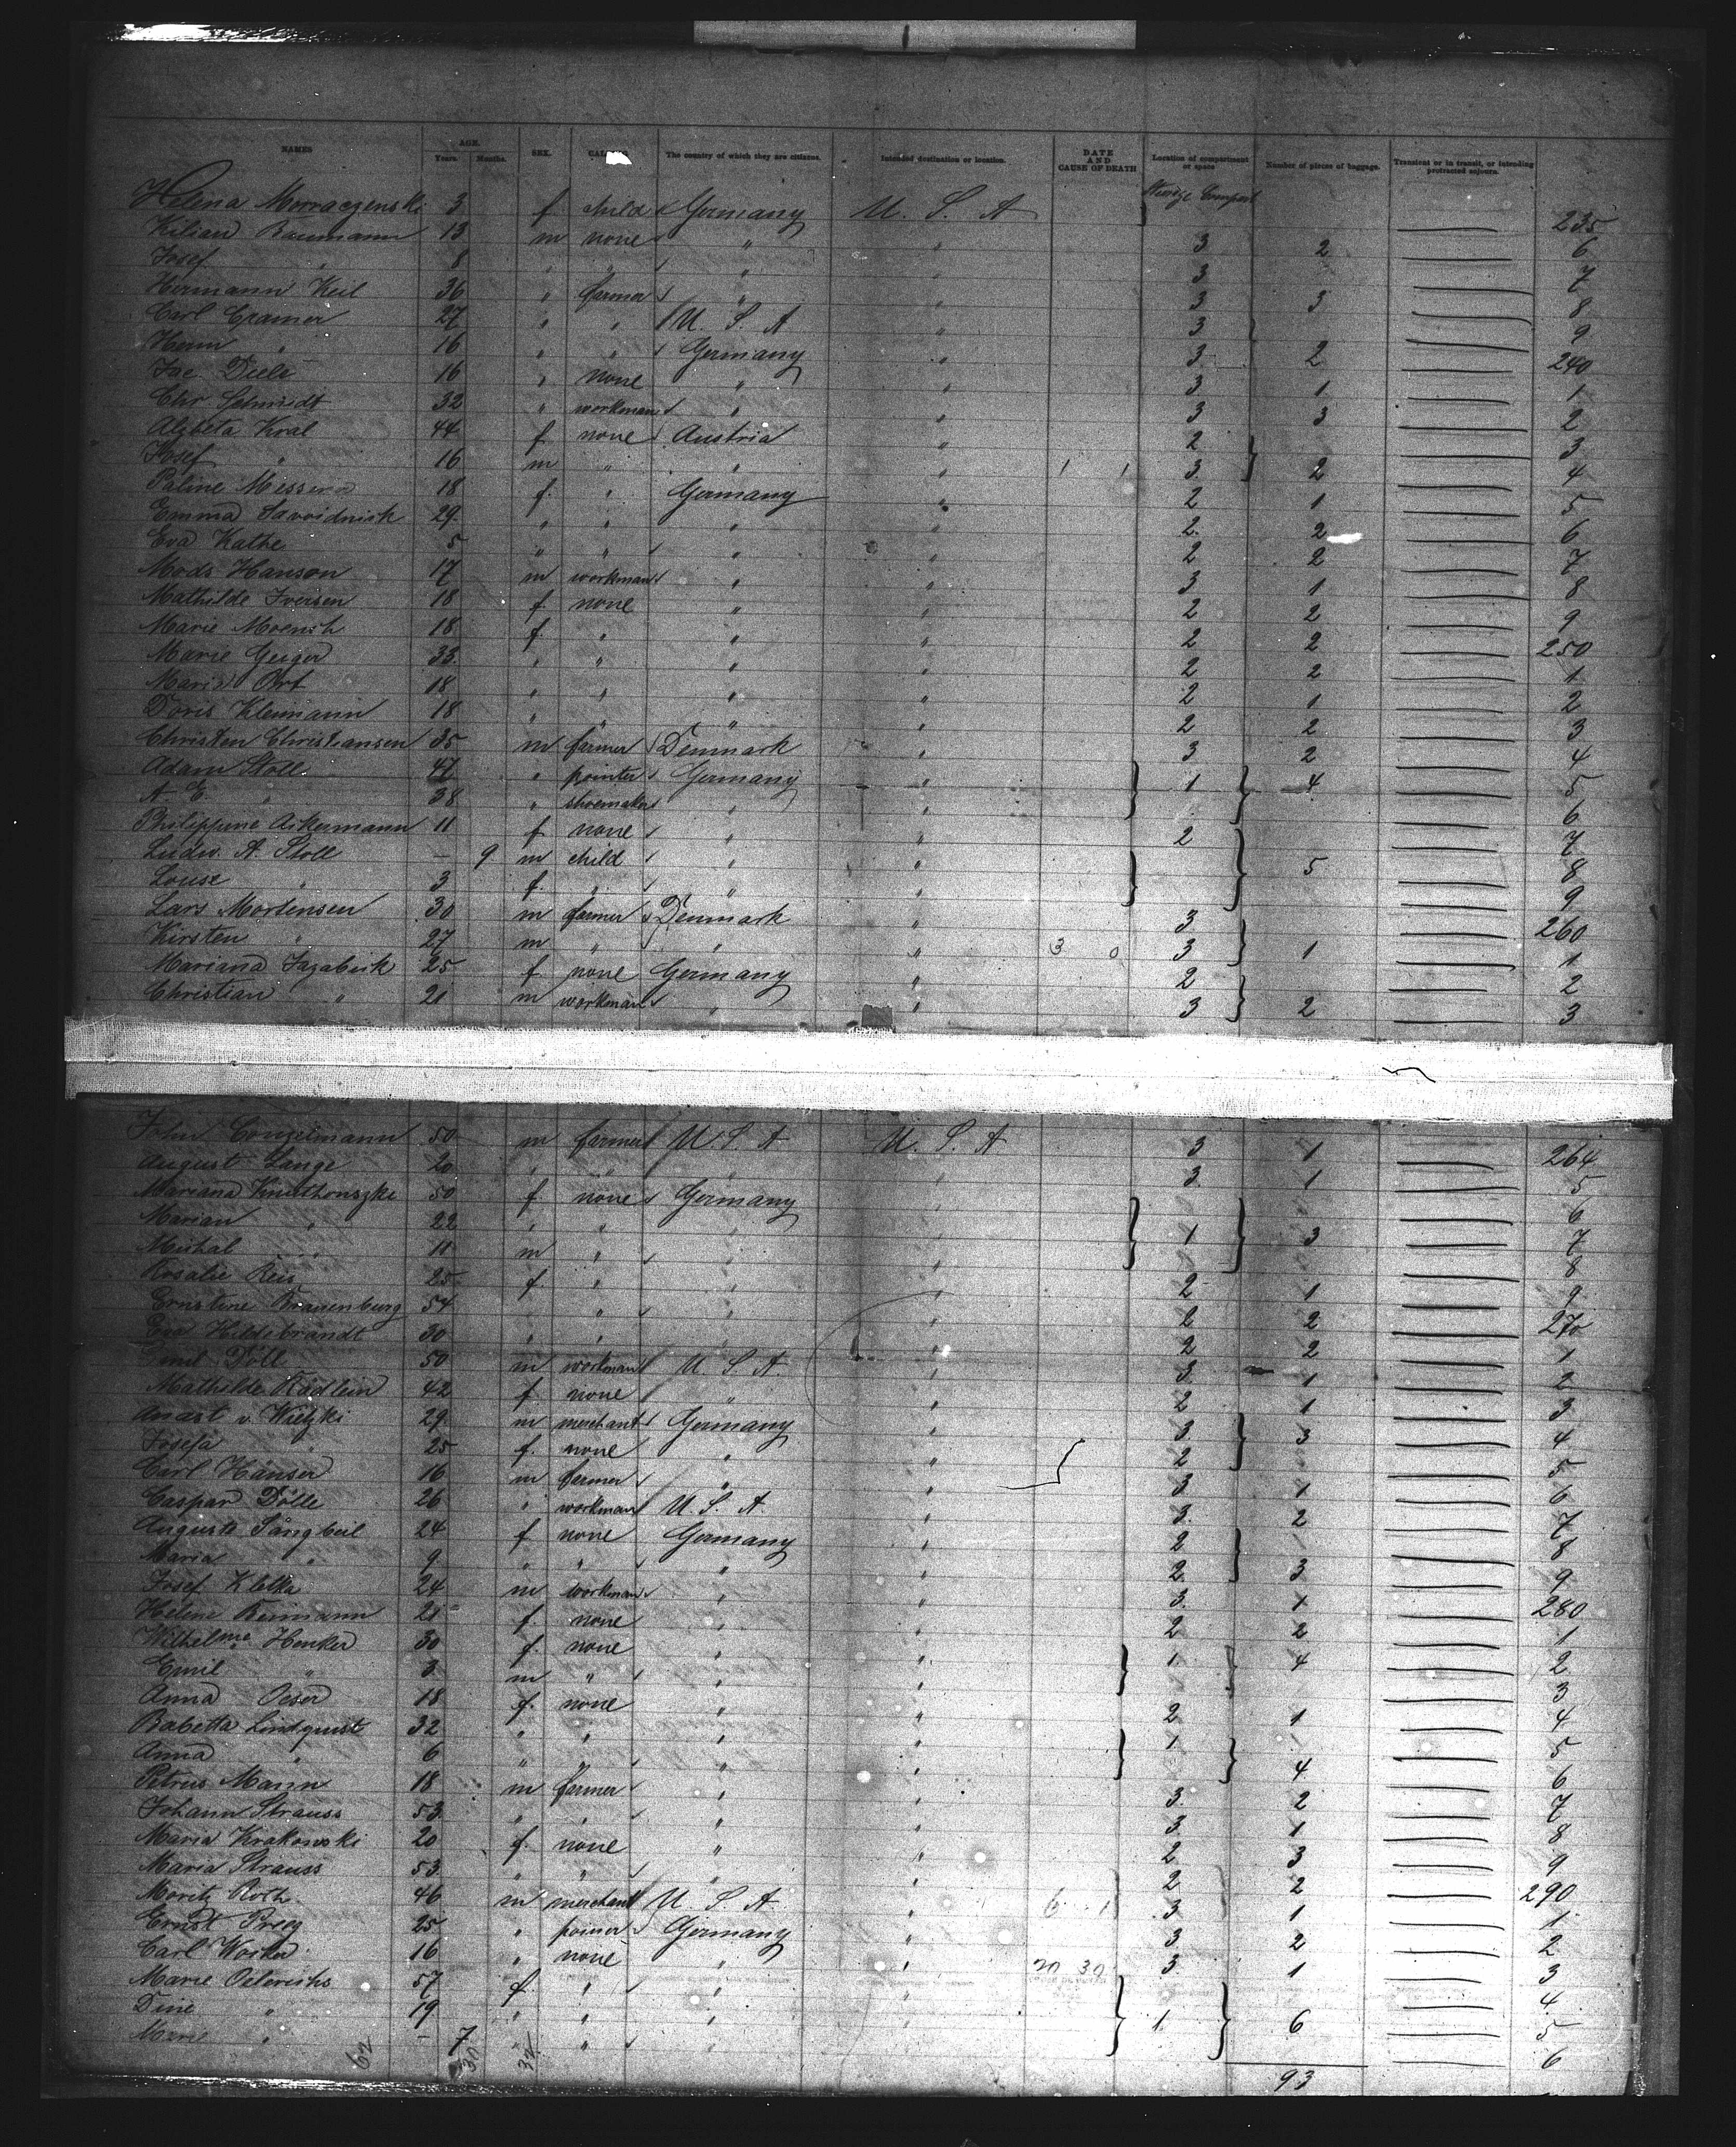 NAMES AGE. SEX. CALLING The country of which they are citizens. Intended destination or location. DATE AND CAUSE OF DEATH Location of compartment or space Number of pieces of baggage. Transient or in transit, or intending protracted sojourn.
Years. Months.
Helena 3 f child Germany U. S. A 235
Kilian Baumann 13 m none " " 3 2 6
Josef " 8 " " " " 3 7
Hermann Keil 36 " farmer " " 3 3 8
Carl Cramer 27 " " U. S. A " 3 9
Herm " 16 " " Germany " 3 2 240
Jac 16 " none " " 3 1 1
Chr Schmidt 32 " workman " " 3 3 2
Alzbeta Kral 44 f. none Austria " 2 3
Josef " 16 m " " " 3 2 4
Paline 18 f. " Germany " 2 1 5
Emma Savoidnick 29 " " " " 2 2 6
Eva Kathe 5 " " " " 2 2 7
Mods Hanson 17 m workman " " 3 1 8
Mathilde Iversen 18 f. none " " 2 2 9
Marie Moench 18 f. " " " 2 2 250
Marie Geiger 33 " " " " 2 2 1
Maria Ort 18 " " " " 2 1 2
Doris Kleimann 18 " " " " 2 2 3
Christen Christiansen 35 m farmer Denmark " 3 2 4
Adam Stoll 47 " painter Germany " 1 4 5
A E " 38 " shoemaker " " 6
Philippine Askermann 11 f none " " 2 7
Ludw. A. Stoll – 9 m child " " 5 8
Louise " 3 f. " " " 9
Lars Mortensen 30 m farmer Denmark " 3 260
Kirsten " 27 m " " " 3 0 3 1 1
Mariana Jazabeik 25 f none Germany " 2 2
Christian " 21 m workman " " 3 2 3
John Conzelmann 50 m farmer U S A U. S. A 3 1 264
August Lange 20 " " " " 3 1 5
Mariana 50 f none Germany " 6
Marian " 22 " " " " 1 3 7
Michal " 11 m " " " 8
Rosalie Reis 25 f. " " " 2 1 9
Ernstine Brauenburg 54 " " " " 2 2 270
Eva Hildebrandt 30 " " " " 2 2 1
Emil Döll 50 m workman U. S A. " 3 1 2
Mathilde Rädlein 42 f none " " 2 1 3
Anast v. Wielzki 29 m merchant Germany " 3 3 4
Josefa " 25 f. none " " 2 5
Carl Hänser 16 m farmer " " 3 1 6
Caspar Dölle 26 " workman U. S. A. " 3 2 7
Auguste Sängbeil 24 f none Germany " 2 8
Maria " 9 " " " " 2 3 9
Josef Kletka 24 m workman " " 3 1 280
Helene Beimann 21 f. none " " 2 2 1
Wilhelme Henker 30 f. none " " 1 4 2
Emil " 3 m " " " 3
Anna Oeser 18 f. none " " 2 1 4
Babetta Lindquist 32 " " " " 1 5
Anna " 6 " " " " 4 6
Petrus Mann 18 m farmer " " 3 2 7
Johann Strauss 53 " " " " 3 1 8
Maria Krakowski 20 f. none " " 2 3 9
Maria Strauss 53 " " " " 2 2 290
Moritz Roth 46 m merchant U. S. A " 6 1 3 1 1
Ernst Preeg 25 " Germany " 3 2 2
Carl 16 " none " " 20 30 3 1 3
Marie Oelerichs 57 f. " " " 4
Dine " 19 " " " " 1 6 5
Marie " – 7 " " " 6
62 30 32 93